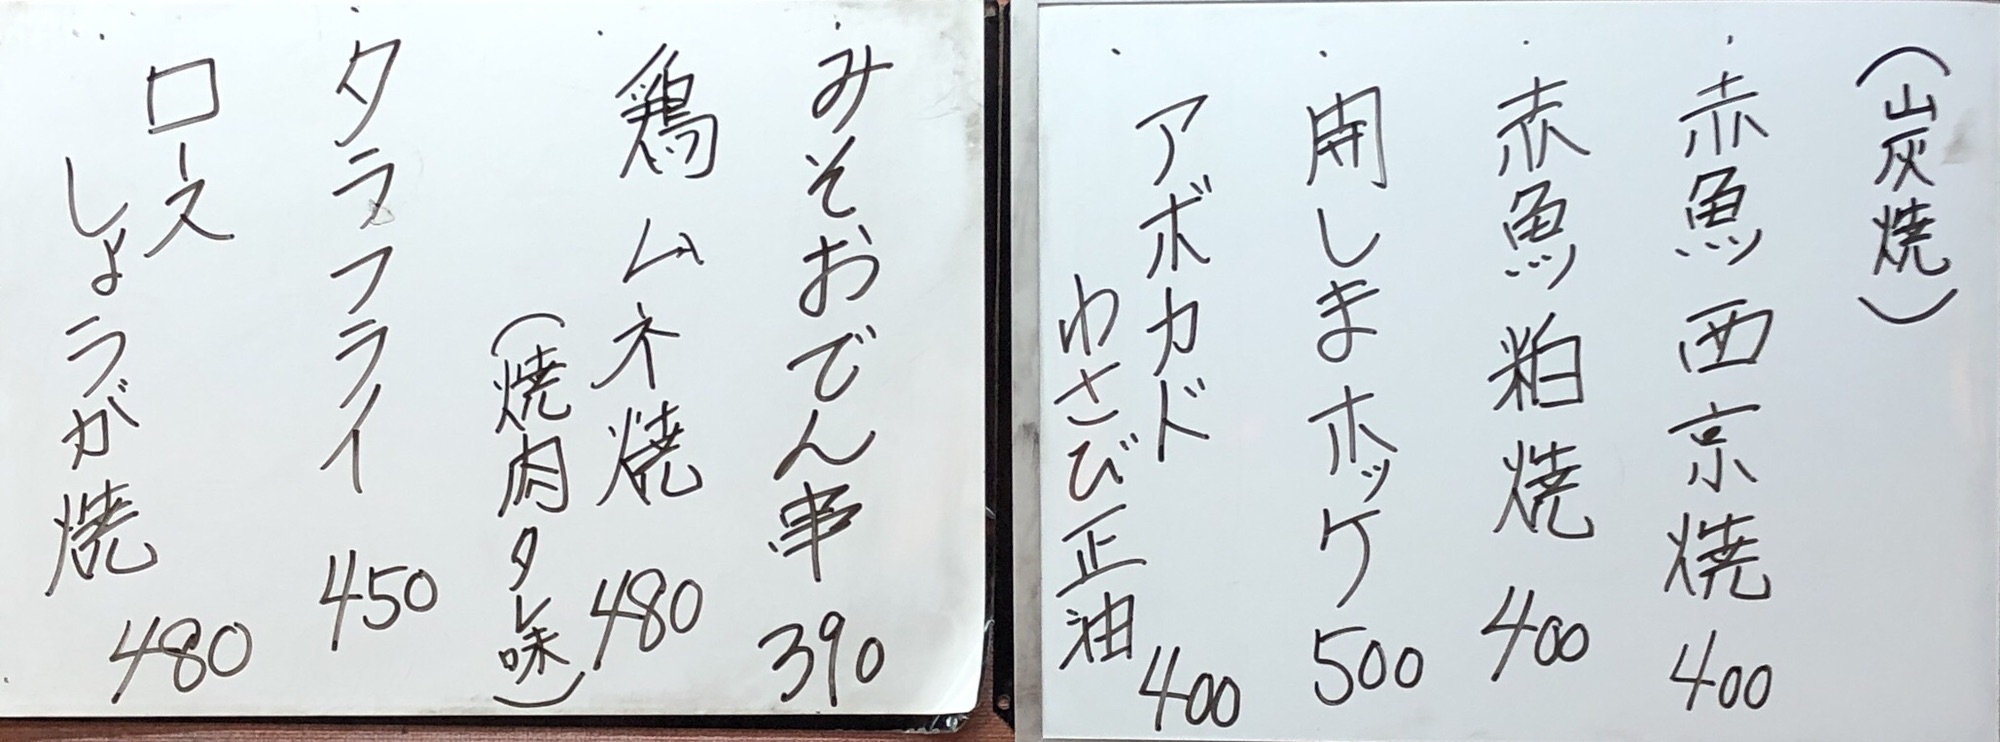 (山灰焼)
・赤魚西京焼 400
・赤魚粕焼 400
・開しまホッケ 500
・アボカド
わさび正油 400
・みそおでん串 390
・鶏ムネ焼 480
(焼肉タレ味)
・タラフライ 450
・ロース
しょうが焼 480